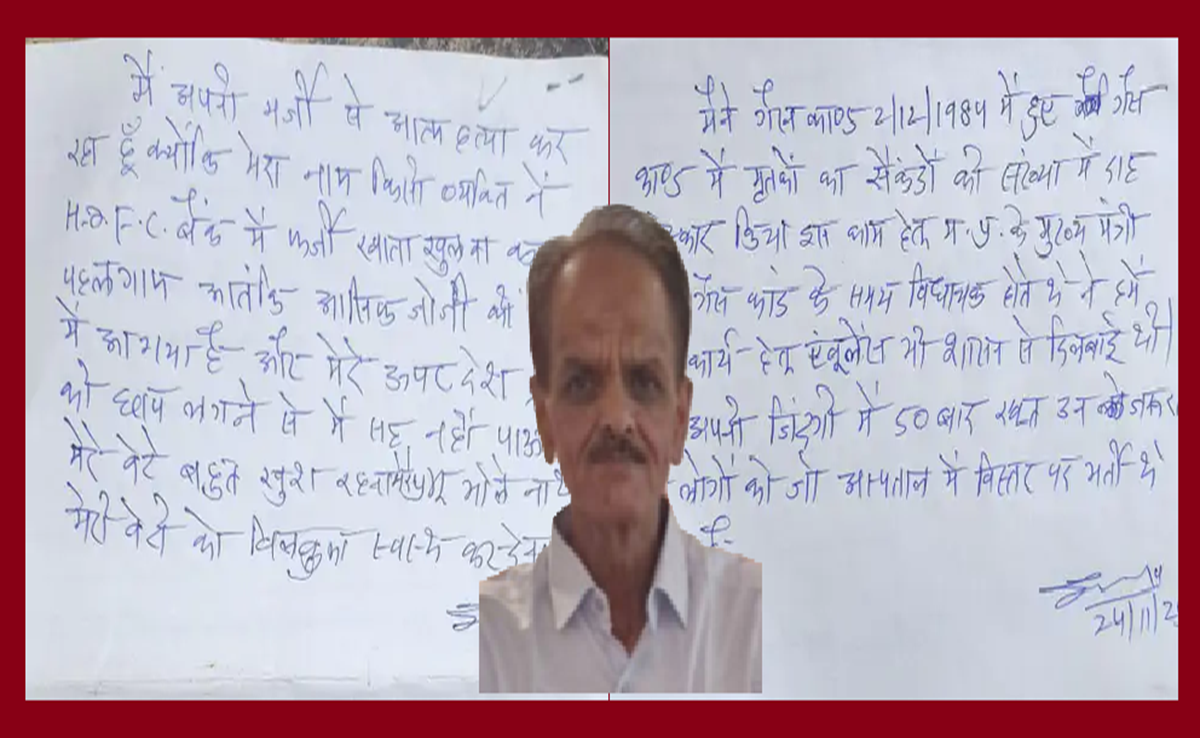 मैं अपनी मर्जी से आत्म हत्या कर
रहा हूँ क्योंकि मेरा नाम किसी व्यक्ति नें
H.D.F.C. बैंक में फर्जी खाता खुलवा
पहलगाम आतंकि आसिफ जोजी
में आ गया है और मेरे ऊपर देश
की छाप लगने से में सह नहीं पाऊ
मेरे बेटे बहुत खुश रहना मेरे प्रभू भोले नाथ
मेरी बेटी को बिलकुल स्वस्थ कर देना
मैने गैस काण्ड 2/12/1984 में हुए गैस
काण्ड में मृतकों का सैकंडों की संख्या में दाह
स्कार किया इस काम हेतु म.प्र. के मुख्य मंत्री
गैस कांड के समय विधायक होते थे ने हमें
कार्य हेतु एंबूलेंस भी शासन से दिलबाई थी।
अपनी जिंदगी में 50 बार रक्त उन
लोगों को जो अस्पताल में बिस्तर पर भर्ती थे
है-
24/11/2